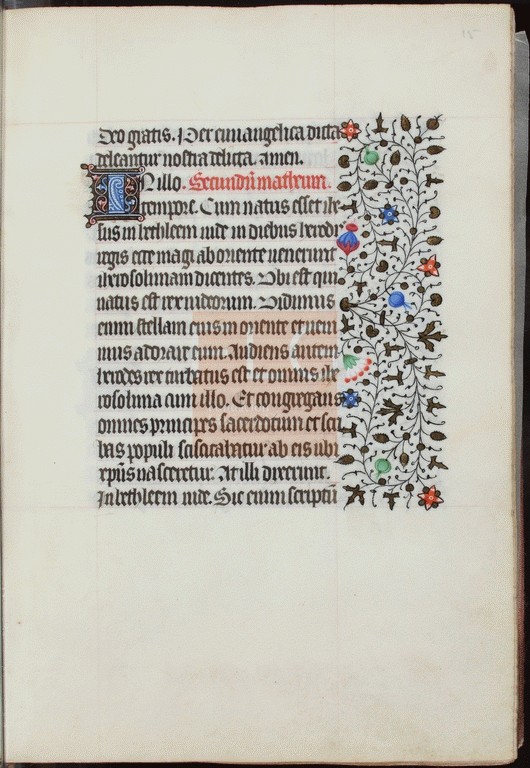 15
Deo gratias. Per eu͞u͞angelica dicta
deleantur nostra delicta. amen.
IN illo. Secundu͞ matheum.
tempore. Cum natus esset ihe
sus in bethleem iude in diebus herodis
regis ecce magi ab oriente uenerunt
iherosolimam dicentes. Vbi est qui
natus est rex iudeorum. Vidimus
enim stellam eius in oriente et ueni
mus adorare eum. Audiens autem
herodes rex turbatus est et omnis ihe
rosolima cum illo. Et congregans
omnes principes sacerdotum et scri
bas populi sciscitabatur ab eis ubi
xp͞us nasceretur. At illi dixerunt.
In bethleem iude. Sic enim scriptu͞